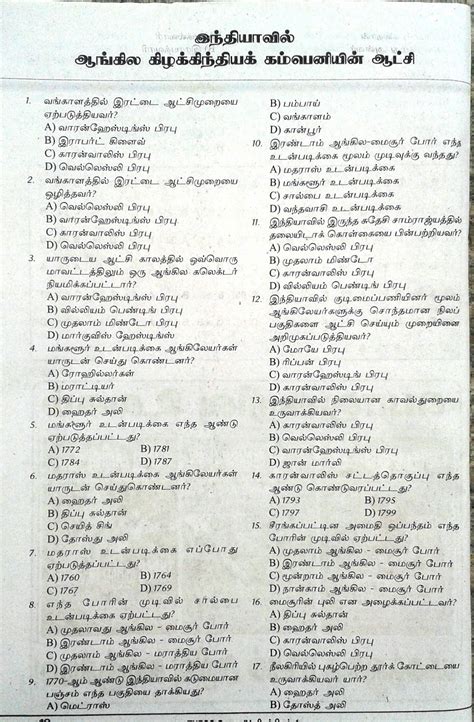 இந்தியாவில்
ஆங்கில கிழக்கிந்தியக் கம்பனியின் ஆட்சி
1. வங்காளத்தில் இரட்டை ஆட்சிமுறையை
ஏற்படுத்தியவர்?
A) வாரன்ஹேஸ்டிங்ஸ் பிரபு
B) இராபர்ட் கிளைவ்
C) காரன்வாலிஸ் பிரபு
D) வெல்லெஸ்லி பிரபு
2. வங்காளத்தில் இரட்டை ஆட்சிமுறையை
ஒழித்தவர்?
A) வெல்லெஸ்லி பிரபு
B) வார்ரன்ஹேஸ்டிங்ஸ் பிரபு
C) காரன்வாலிஸ் பிரபு
D) வெல்லெஸ்லி பிரபு
3. யாருடைய ஆட்சி காலத்தில் ஒவ்வொரு
மாவட்டத்திலும் ஒரு ஆங்கில கலெக்டர்
நியமிக்கப்பட்டார்?
A) வார்ன்ஹேஸ்டிங்ஸ் பிரபு
B) வில்லியம் பெண்டிங் பிரபு
C) முதலாம் மிண்டோ பிரபு
D) மார்குவிஸ் ஹேஸ்டிங்ஸ்
4. மங்களூர் உடன்படிக்கை ஆங்கிலேயர்கள்
யாருடன் செய்து கொண்டனர்?
A) ரோஹில்லர்கள்
B) மராட்டியர்
C) திப்பு சுல்தான்
D) ஹைதர் அலி
5. மங்களூர் உடன்படிக்கை எந்த ஆண்டு
ஏற்படுத்தப்பட்டது?
A) 1772 B) 1781
C) 1784 D) 1787
6. மதராஸ் உடன்படிக்கை ஆங்கிலேயர்கள்
யாருடன் செய்துகொண்டனர்?
A) ஹைதர் அலி
B) திப்பு சுல்தான்
C) செயித் சிங்
D) தோஸ்து அலி
7. மதராஸ் உடன்படிக்கை எப்போது
ஏற்படுத்தப்பட்டது?
A) 1760 B) 1764
C) 1767 D) 1769
8. எந்த போரின் முடிவில் சர்பை
உடன்படிக்கை ஏற்பட்டது?
A) முதலாவது ஆங்கில - மைசூர் போர்
B) இரண்டாம் ஆங்கில - மைசூர் போர்
C) முதலாம் ஆங்கில - மராத்திய போர்
D) இரண்டாம் ஆங்கில - மராத்திய போர்
9. 1770-ஆம் ஆண்டு இந்தியாவில் கடுமையான
பஞ்சம் எந்த பகுதியை தாக்கியது?
A) மெட்ராஸ்
B) பம்பாய்
C) வங்காளம்
D) கான்பூர்
10. இரண்டாம் ஆங்கில-மைசூர் போர் எந்த
உடன்படிக்கை மூலம் முடிவுக்கு வந்தது?
A) மதராஸ் உடன்படிக்கை
B) மங்களூர் உடன்படிக்கை
C) சால்பை உடன்படிக்கை
D) வந்தவாசி உடன்படிக்கை
11. இந்தியாவில் இருந்த சுதேசி சாம்ராஜ்யத்தில்
தலையிடாக் கொள்கையை பின்பற்றியவர்?
A) வெல்லெஸ்லி பிரபு
B) முதலாம் மிண்டோ
C) காரன்வாலிஸ் பிரபு
D) வில்லியம் பெண்டிங் பிரபு
12. இந்தியாவில் குடிமைப்பணியினர் மூலம்
ஆங்கிலேயர்களுக்கு சொந்தமான நிலப்
பகுதிகளை ஆட்சி செய்யும் முறையினை
அறிமுகப்படுத்தியவர்?
A) மோயே பிரபு
B) ரிப்பன் பிரபு
C) வாரன்ஹேஸ்டிங் பிரபு
D) காரன்வாலிஸ் பிரபு
13. இந்தியாவில் நிலையான காவல்துறையை
உருவாக்கியவர்?
A) காரன்வாலிஸ் பிரபு
B) வெல்லெஸ்லி பிரபு
C) வார்ன்ஹேஸ்டிங்ஸ் பிரபு
D) ஜான் மார்லி
14. காரன்வாலிஸ் சட்டத்தொகுப்பு எந்த
ஆண்டு கொண்டுவரப்பட்டது?
A) 1793 B) 1795
C) 1797 D) 1799
15. சீரங்கப்பட்டின அமைதி ஒப்பந்தம் எந்த
போரின் முடிவில் ஏற்பட்டது?
A) முதலாம் ஆங்கில - மைசூர் போர்
B) இரண்டாம் ஆங்கில - மைசூர் போர்
C) மூன்றாம் ஆங்கில - மைசூர் போர்
D) நான்காம் ஆங்கில - மைசூர் போர்
16. மைசூரின் புலி என அழைக்கப்பட்டவர்?
A) திப்பு சுல்தான்
B) ஹைதர் அலி
C) காரன்வாலிஸ் பிரபு
D) வெல்லெஸ்லி பிரபு
17. நீலகிரியில் புகழ்பெற்ற தூர்க் கோட்டையை
உருவாக்கியவர் யார்?
A) ஹைதர் அலி
B) திப்பு சுல்தான்
C) தோஸ்த் அலி